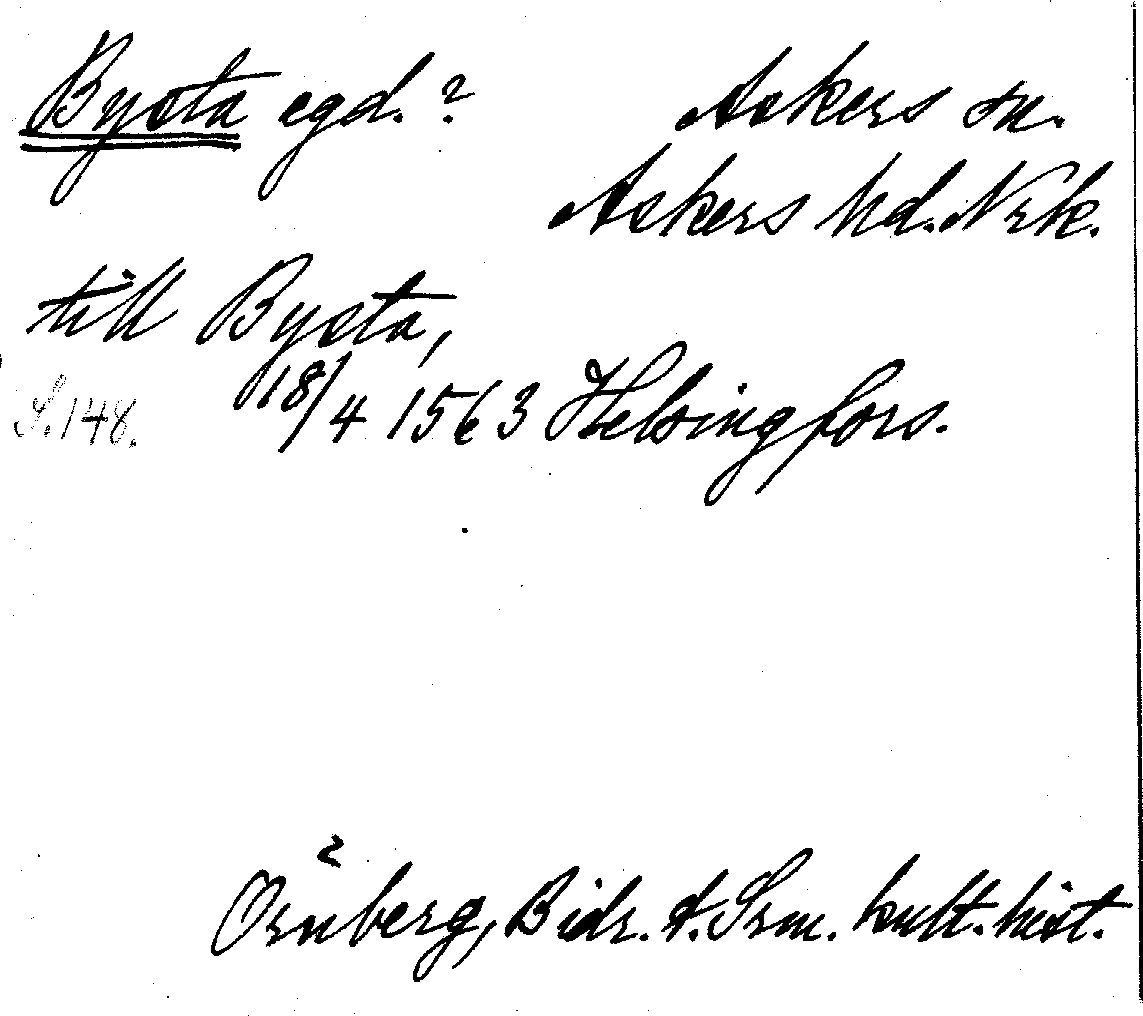 Bysta egd.? Askers sn.
Askers hd. Nrk.
till Bysta,
S. 148. 18/4 1563 Helsingfors.
Örnberg, Bidr. t. Srm. kult. hist.